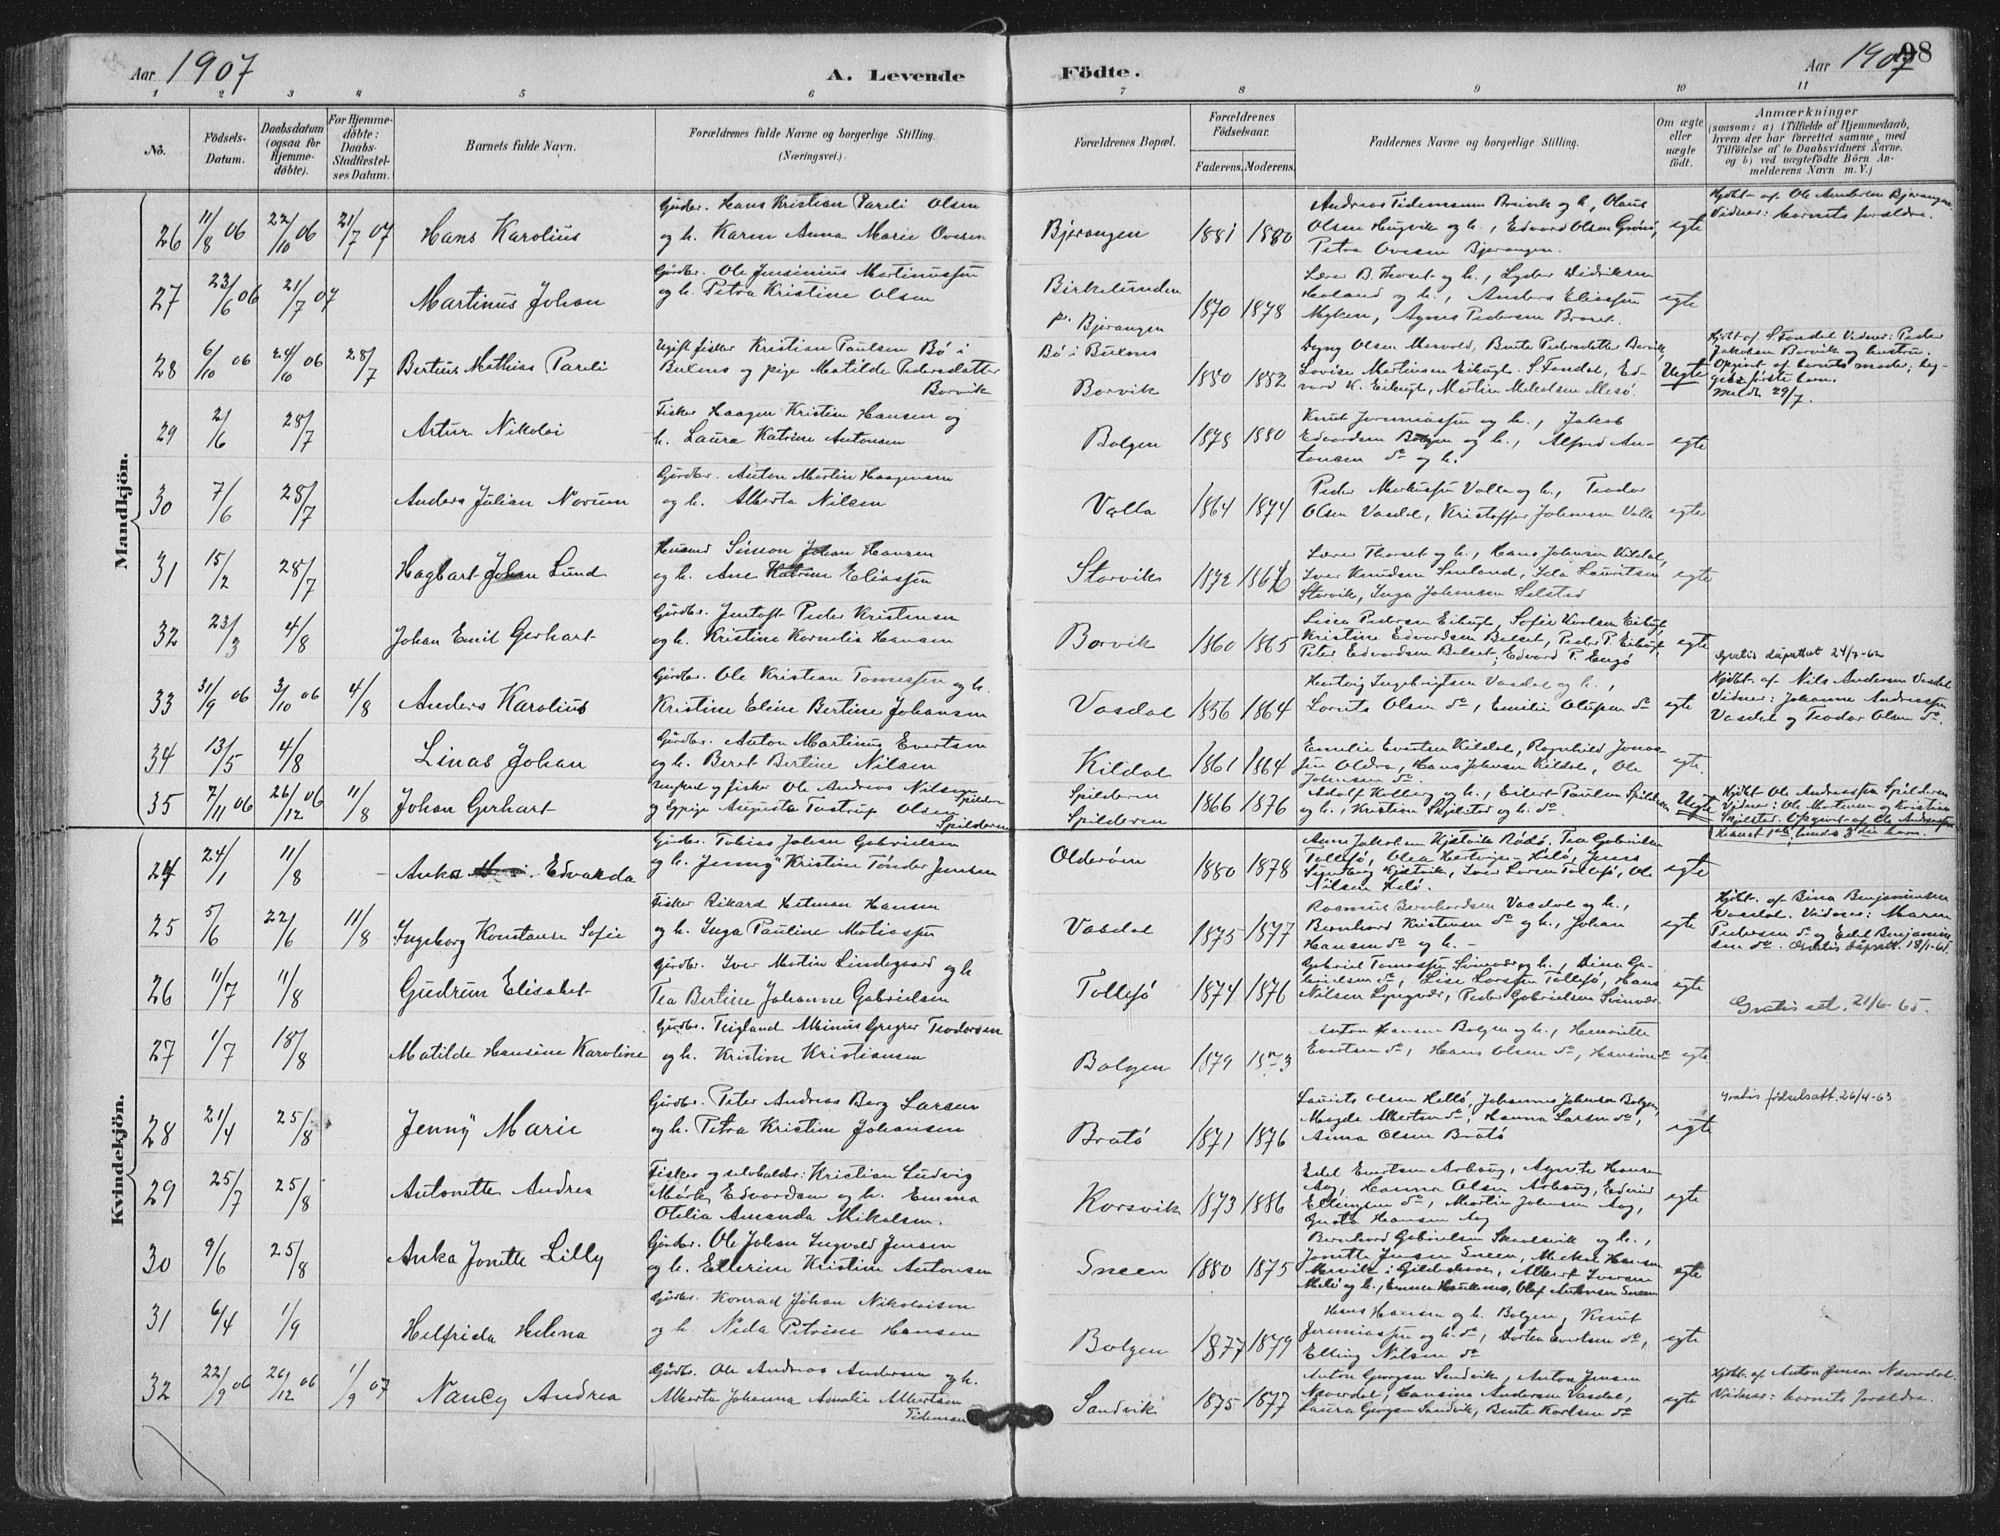 Aar 1907
A. Levende Födte.
Aar 1907
98
1 2 3 4 5 6 7 8 9 10 11
No.
Födsels-Datum.
Daabsdatum (ogsaa for Hjemme-döbte).
For Hjemme-döbte: Daabs-Stadfæstel-ses Datum.
Barnets fulde Navn.
Forældrenes fulde Navne og borgerlige Stilling. (Næringsvei.)
Forældrenes Bopæl.
Forældrenes Födselsaar.
Faderens. Moderens.
Faddernes Navne og borgerlige Stilling.
Om ægte eller uægte födt.
Anmærkninger
(saasom: a) i Tilfælde af Hjemmedaab, hvem der har forrettet samme, med Tilföielse af to Daabsvidners Navne. og b) ved uægtefödte Börn An-melderens Navn m. V.)
Mandkjön.
26 11/8 06 22/10 06 21/7 07 Hans Karolius
Gårdbr. Hans Kristian Pareli Olsen
og h. Karen Anna Marie Ovesen
Bjerangen 1881 1880
Andreas Tidemann Breivik og h., Olaus
Olsen Haugvik og h., Edvard Olsen Grönö,
Petra Ovesen Bjerangen.
egte
Hjdbt. af Ole Andersen Bjerangen.
Vidner: barnets forældre.
27 23/6 06 21/7 07 Martinus Johan
Gårdbr. Ole Jensenius Martinussen
og h. Petra Kristine Olsen
Birkelunden
p. Bjerangen 1870 1878
Lærer B. Thorset og h., Lyder Didriksen
Høland og h., Anders Eliassen
Myken, Agnes Pedersen
egte
28 6/10 06 24/10 06 28/7 Bertius Mathias Pareli
Ugift fisker Kristian Paulsen Bö i
Buxnes og pige Matilde Pedersdatter
Borvik
Bö i Buxnes
Borvik 1880 1882
Lovise Martinsen Eibugt. S. Fondal, Ed-
vard K. Eibugt, Martin Mikalsen Mesö.
Uegte
Hjdbt af S. Fondal Vidner: Peder
Jakobsen Borvik og hustru.
Opgivet af barnets moder; beg-
ges første barn.
Meldt 29/7.
29 2/6 28/7 Artur Nikolai
Fisker Haagen Kristian Hansen og
h. Laura Katrine Antonsen
Bolgen 1878 1880
Knut Jeremiassen og h., Jakob
Edvardsen Bolgen og h., Alfred An-
tonsen do og h.
egte
30 7/6 28/7 Anders Julian Norum
Gårdbr. Anton Martin Haagensen
og h. Alberta Nilsen
Valla 1864 1874
Peder Markussen Valla og h., Teodor
Olsen Vasdal, Kristoffer Johansen Valla
egte
31 15/2 28/7 Hagbart Johan Lund
Husmd Simon Johan Hansen
og h. Ane Katrine Eliassen
Storvik 1872 1867
Lærer Thorset og h., Hans Johnsen Kildal,
Iver Knudsen Senland, Ida Lauritsen
Storvik, Inga Johansen Selsted
egte
32 23/3 4/8 Johan Emil Gerhart
Gårdbr. Jentoft Peder Kristensen
og h. Kristine Kornelia Hansen
Borvik 1860 1865
Lisa Pedersen Eibugt, Sofie Karlsen Eibugt
Kristine Edvardsen Belset, Peder P. Eibugt
Peter Edvardsen Belset, Edvard P. Engö
egte
33 31/9 06 3/10 06 4/8 Anders Karolius
Gårdbr. Ole Kristian Tomassen og h.
Kristine Eline Bertine Johansen
Vasdal 1856 1864
Hartvig Ingebrigtsen Vasdal og h.,
Lorents Olsen do, Emilie Olufsen do
egte
Gratis dåpsattest 24/7-62
Hjdbt. af Nils Andersen Vasdal
Vidner: Johanne Andreassen
Vasdal og Teodor Olsen do.
34 13/5 4/8 Linas Johan
Gårdbr. Anton Martinus Evertsen
og h. Beret Bertine Nilsen
Kildal 1861 1864
Emelie Evertsen Kildal, Ragnhild Jonas-
sen Oldra, Hans Johnsen Kildal, Ole
Johansen do.
egte.
35 7/11 06 26/12 06 11/8 Johan Gerhart
Ungkarl og fisker Ole Andreas Nilsen Spilderen
og pige Augusta Tostrup Olsen
Spilderen
Spilderen
Spilderen 1866 1876
Adolf Kolberg og h., Eilert Paulsen Spilderen
og h., Kristian Skjelsted og h. do.
Uegte
Hjdbt Ole Andreassen Spilderen
Vidner: Ole Mortensen og Kristian
Skjelsted. Opgivet af Ole Andreassen
Kvindekjön.
24 24/1 11/8 Anka Edvarda
Gårdbr. Tobias Johan Gabrielsen
og h. Jenny Kristine Tönder Jensen
Olderöen 1880 1878
Anne Jakobsen Kjætvik Rödö, Tea Gabrielsen
Tollefsö, Olea Hartvigsen Helö, Jens
Kjætvik, Iver Larsen Tollefsö, Ole
Nilsen Helö.
egte
25 5/6 22/6 11/8 Ingeborg Konstanse Sofie
Fisker Rikard Hitman Hansen
og h. Inga Pauline Matiassen
Vasdal 1875 1877
Rasmus Bernhardsen Vasdal og h.,
Bernhard Kristensen do og h., Johan
Hansen do og h. -
egte
Hjdbt. af Bina Benjaminsen
Vasdal. Vidner: Maren
Pedersen do og Edel Benjamin-
sen do. Gratis dåpsatt. 18/1-65
26 11/7 11/8 Gudrun Elisabet
Gårdbr. Iver Martin Lindegaard og h
Tea Bertine Johanne Gabrielsen
Tollefsö 1874 1876
Gabriel Tomassen Svinvær og h., Dina Ga-
brielsen do, Lise Larssen Tollefsö, Hans
Nilsen Lyngvær, Peder Gabrielsen Svinvær
egte
Gratis att. 21/6-65.
27 1/7 18/8 Matilde Hansine Karoline
Gårdbr. Teigland Albinus Gregers Teodorsen
og h. Kristine Kristiansen
Bolgen 1879 1873
Anton Hansen Bolgen og h., Henriette
Evertsen do, Hans Olsen do, Hansine do
egte
28 21/4 25/8 Jenny Marie
Gårdbr. Peter Andreas Berg Larsen
og h. Petra Kristine Johansen
Bratö 1871 1876
Laurits Olsen Hellö, Johannes Johansen Bolgen,
Magda Albertsen do, Hanna Larsen do,
Anna Olsen Bratö
egte
Gratis fødselsatt. 26/4-63
29 25/7 25/8 Antonette Andrea
Fisker og selvholder: Kristian Ludvig
Mörk Edvardsen og h. Emma
Otilia Amanda Mikalsen.
Korsvik 1873 1886
Edel Evertsen Aabaug, Agnete Hansen
Aag, Hanna Olsen
Ellingsen do, Martin Johnsen Aag,
Gusta Hansen Aag
egte
30 9/6 25/8 Anka Jonette Lilly
Gårdbr. Ole Johan Ingvald Jensen
og h. Ellerine Kristine Antonsen
Sneen 1880 1875
Bernhard Gabrielsen Skaalsvik og h.,
Jonette Jensen Sneen, Mikal Hansen
Mesvik i Gildeskaal, Albert Iversen
Melö og h., Emma Haukenes, Olaf Antonsen Sneen
egte
31 6/4 1/9 Helfrida Helena
Gårdbr. Konrad Johan Nikolaisen
og h. Nida Petrine Hansen
Bolgen 1877 1879
Hans Hansen og h. Bolgen, Knut
Jeremiassen og h. do, Dortea Evertsen do,
Elling Nilsen do
egte
32 22/9 06 26/12 06 1/9 07 Nancy Andrea
Gårdbr. Ole Andreas Andersen og h.
Alberta Johanna Amalie Albertsen
Tidemann
Sandvik 1875 1877
Anton Georgsen Sandvik, Anton Jensen
Næverdal, Hansina Andersen Vasdal,
Laura Georgsen Sandvik, Bente Karlsen do
egte
Hjdbt. af Anton Jensen Næverdal.
Vidner: barnets forældre.